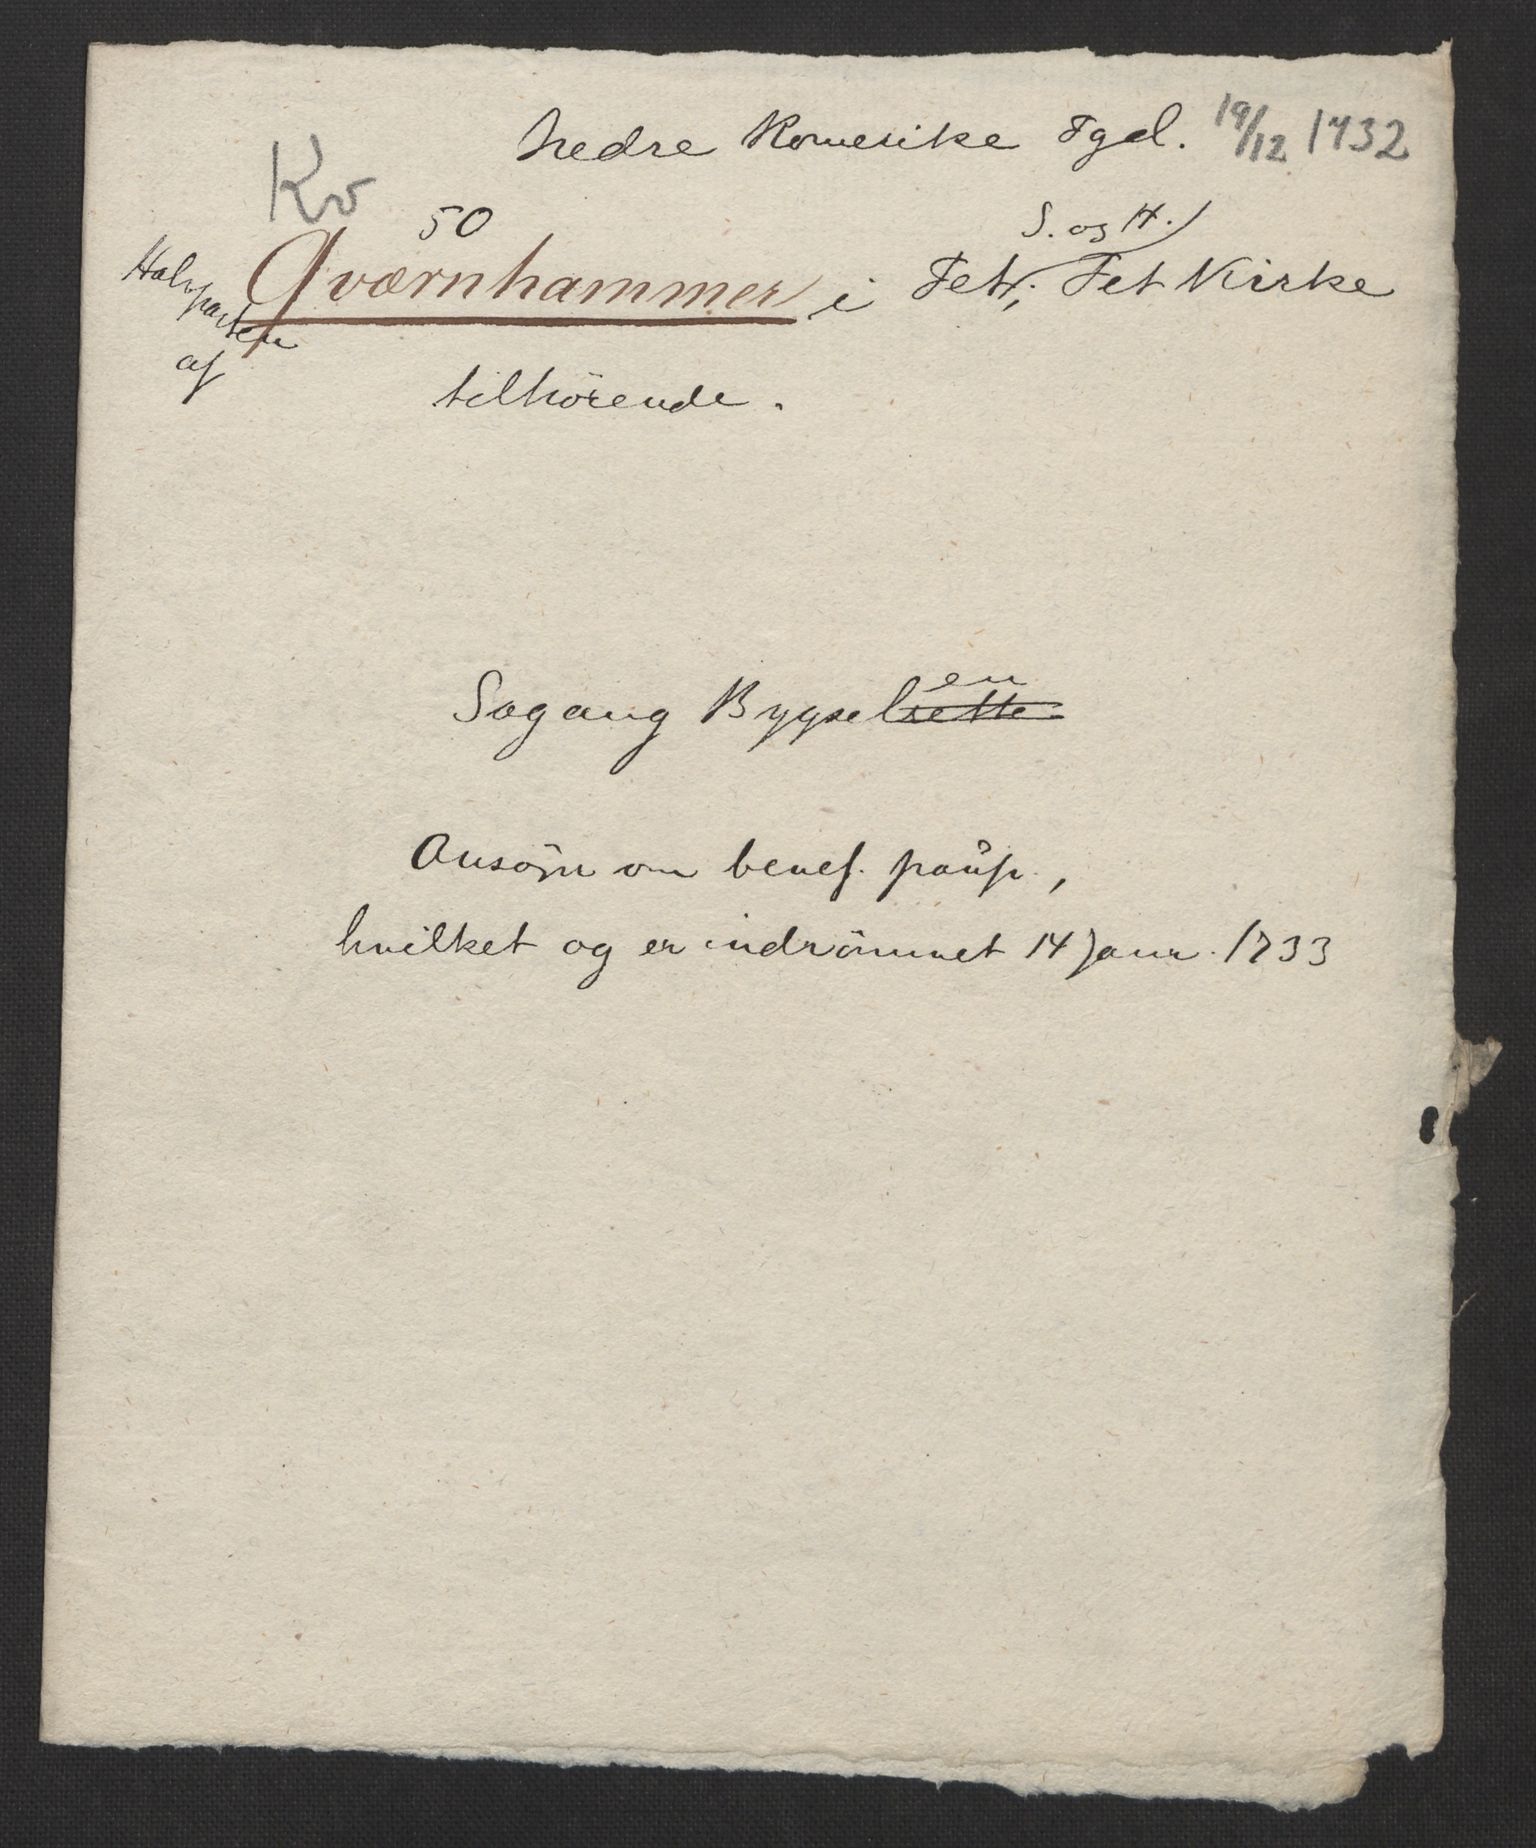 Nedre Romerike Fgd. 19/12 1732
Kv
50
S. og H.
Halvparten af Qværnhammer i Fet; Fet Kirke
tilhörende.
en
Sag ang Bygselrette
Ansögn om benef. paup.,
hvilket og er indrömmet 14 Janr. 1733